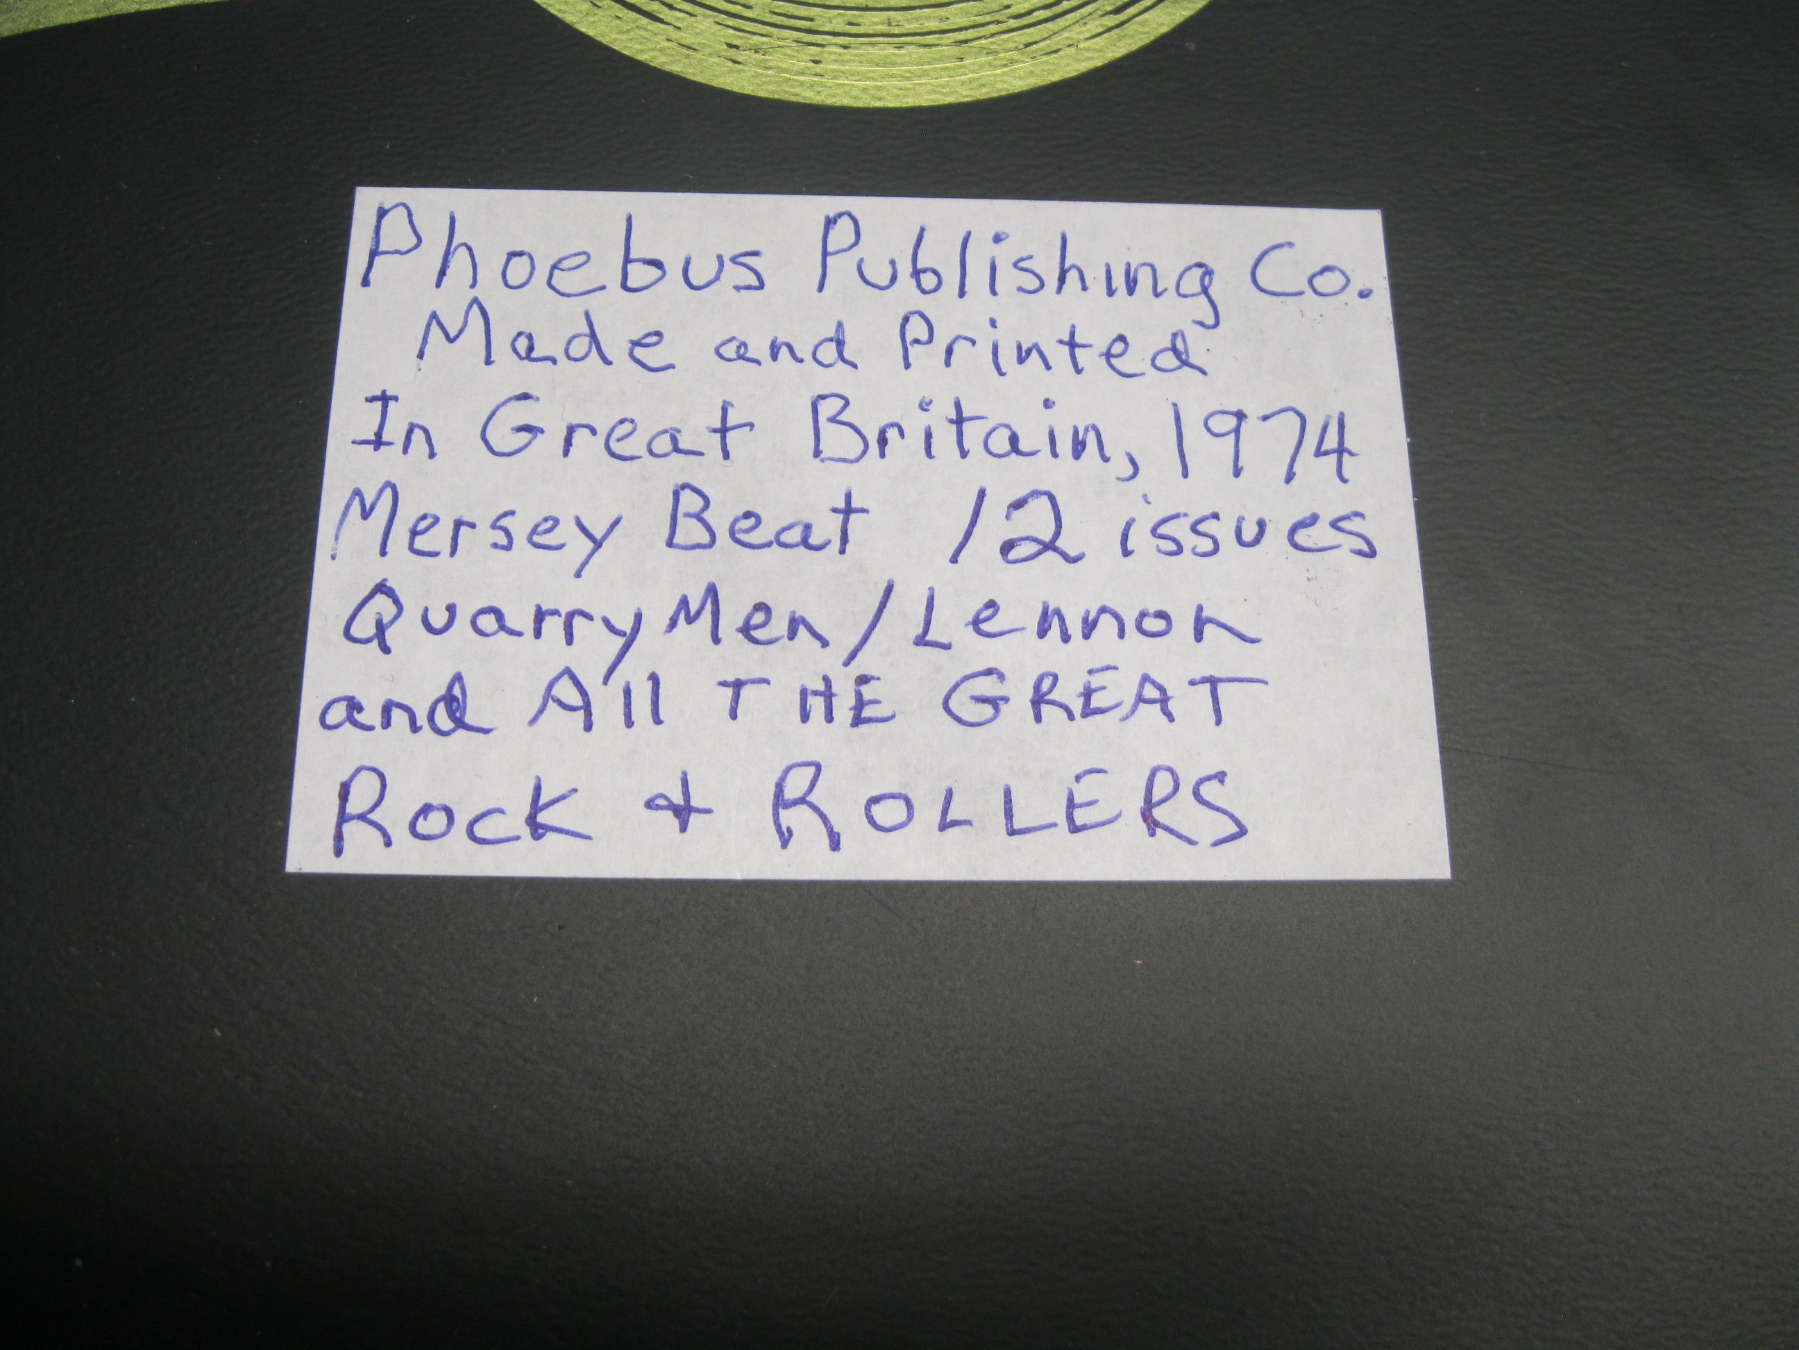 Phoebus Publishing Co.
Made and Printed
In Great Britain, 1974
Mersey Beat 12 issues
QuarryMen/Lennon
and All THE GREAT
ROCK & ROLLERS